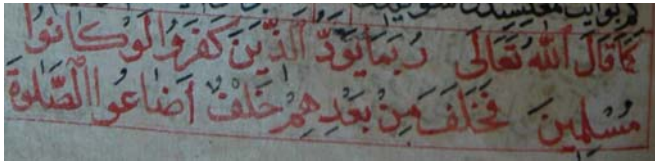 كَمَا قَالَ اللّٰهُ تَعَالَى رُبَمَا يَوَدُّ الَّذِينَ كَفَرُوا لَوْ كَانُوا
مُسْلِمِينَ فَخَلَفَ مِنْ بَعْدِهِمْ خَلْفٌ أَضَاعُوا الصَّلٰوةَ